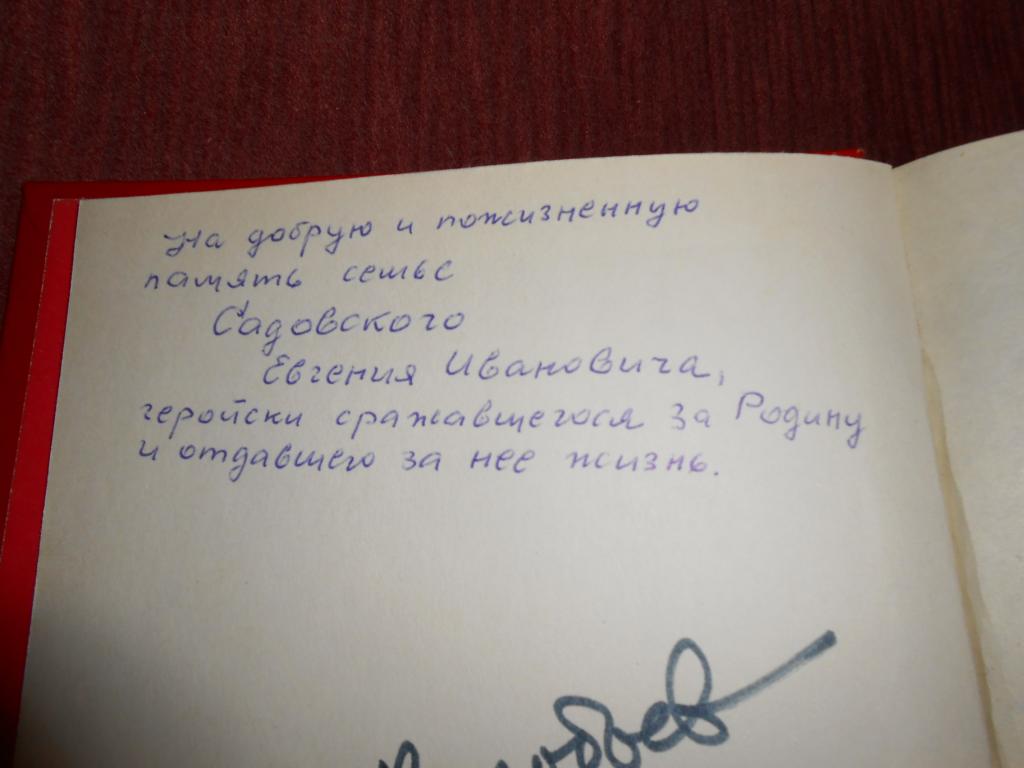 На добрую и пожизненную
память семье
Садовского
Евгения Ивановича,
геройски сражавшегося за Родину
и отдавшего за нее жизнь.